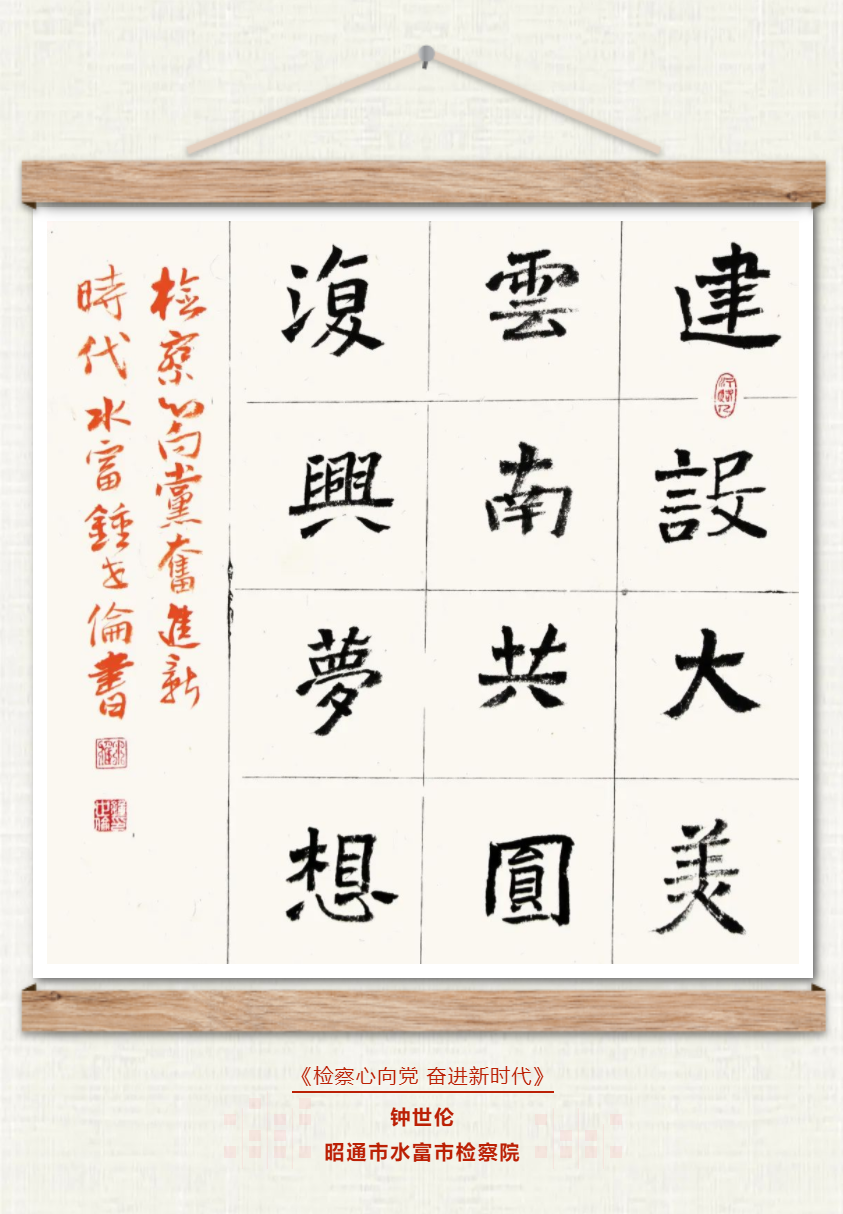 建設大美
雲南共圓
復興夢想
检察心向黨奮進新
時代水富鍾世倫書
《检察心向党 奋进新时代》
钟世伦
昭通市水富市检察院